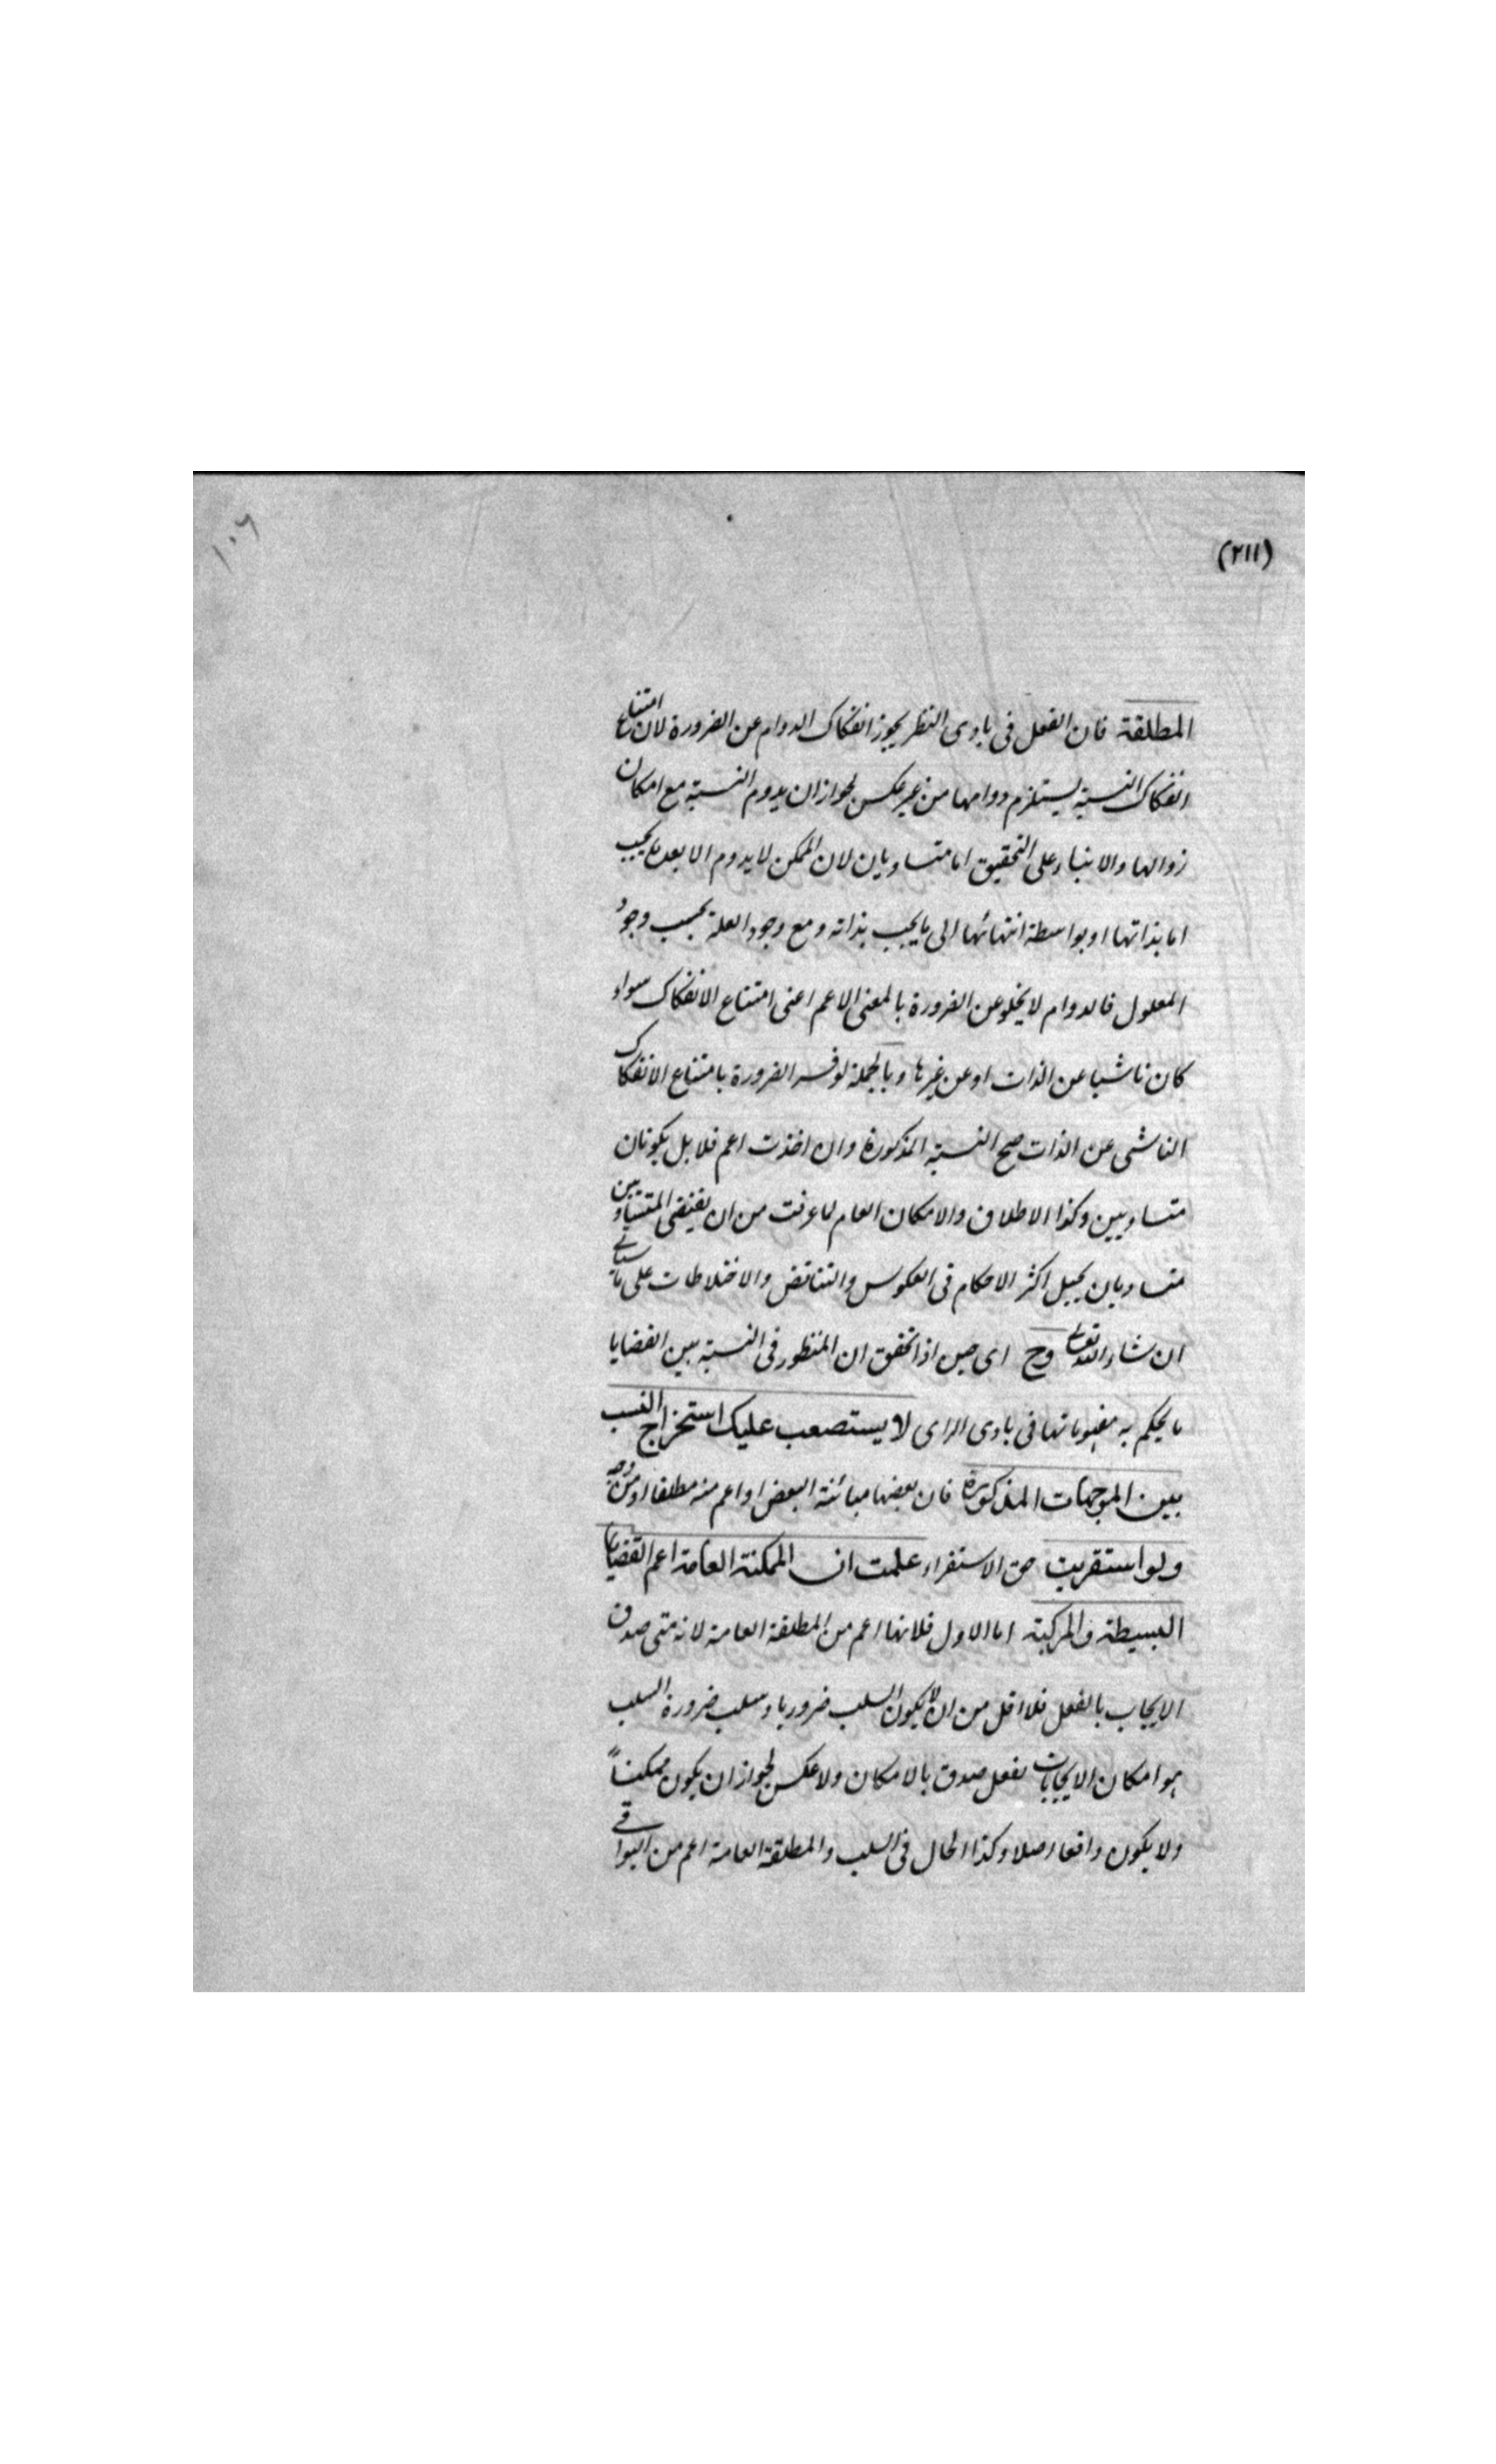 ١٠٦
(٢١١)
المطلقة فان الفعل فى بادى النظر يجوز انفكاك الدوام عن الضرورة لان امتناع
انفكاك النسبة يستلزم دوامها من غير عكس لجواز ان يدوم النسبة مع امكان
زوالها والا بناء على التحقيق اما متساويان لان الممكن لا يدوم الا بعد ما يجب
اما بذاتها او بواسطة انتهائها الى ما يجب بذاته ومع وجود العلة يجب وجود
المعلول فالدوام لا يخلو عن الضرورة بالمعنى الاعم اعنى امتناع الانفكاك سواء
كان ناشيا عن الذات او عن غيرها وبالجملة لو فسر الضرورة بامتناع الانفكاك
الناشى عن الذات صح النسبة المذكورة وان اخذت اعم فلا بل يكونان
متساويين وكذا الاطلاق والامكان العام لما عرفت من ان نقيضى المتساويين
متساويان اكثر الاحكام فى العكوس والتناقض والاختلاطات على ما سياتى
ان شاء الله تعالى وح اى حين اذ تحقق ان المنظور فى النسبة بين القضايا
ما يحكم به مفهوماتها فى بادى الراى لا يستصعب عليك استخراج النسب
بين الموجهات المذكورة فان بعضها مبائنة البعض او اعم منه مطلقا او من وجه
ولو استقريت حق الاستقراء علمت ان الممكنة العامة اعم القضايا
البسيطة والمركبة اما الاول فلانها اعم من المطلقة العامة لانه متى صدق
الايجاب بالفعل فلا اقل من ان لا يكون السلب ضروريا وسلب ضرورة السلب
هو امكان الايجاب بفعل صدق بالامكان ولا عكس لجواز ان يكون ممكناً
ولا يكون واقعا اصلا وكذا الحال فى السلب والمطلقة العامة اعم من البواقى